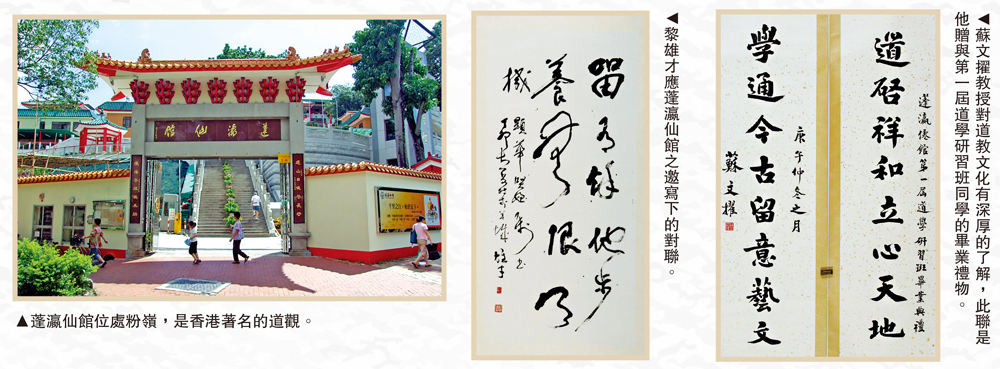 蓬瀛仙舘
▲蓬瀛仙館位處粉嶺，是香港著名的道觀。
留有餘地步
養無限天
機
◀黎雄才應蓬瀛仙館之邀寫下的對聯。
蓬瀛僊館第一屆道學研習班畢業典禮
道啓祥和立心天地
學通今古留意藝文
庚午仲冬之月
蘇文擢
◀蘇文擢教授對道教文化有深厚的了解，此聯是
他贈與第一屆道學研習班同學的畢業禮物。